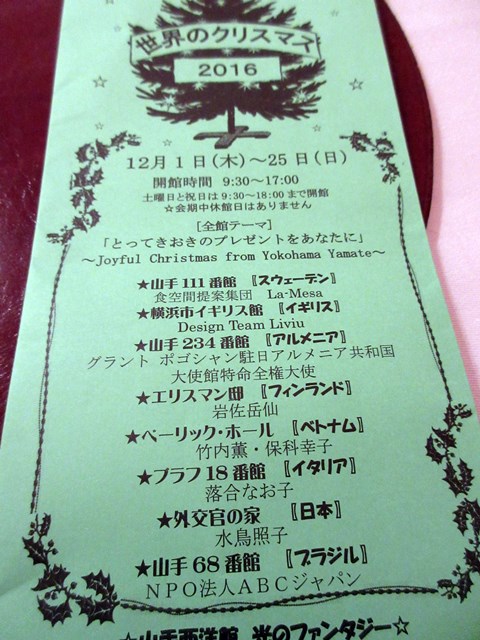 世界のクリスマス
2016
12月1日(木)~25日(日)
開館時間 9:30~17:00
土曜日と祝日は9:30~18:00まで開館
☆会期中休館日はありません
[全館テーマ]
「とってきおきのプレゼントをあなたに」
~Joyful Christmas from Yokohama Yamate~
★山手111番館 『スウェーデン』
食空間提案集団 La-Mesa
★横浜市イギリス館 『イギリス』
Design Team Liviu
★山手234番館 『アルメニア』
グラント ポゴシャン駐日アルメニア共和国
大使館特命全権大使
★エリスマン邸 『フィンランド』
岩佐岳仙
★ベーリック・ホール 『ベトナム』
竹内薫・保科幸子
★ブラフ18番館 『イタリア』
落合なお子
★外交官の家 『日本』
水鳥照子
★山手68番館 『ブラジル』
NPO法人ABCジャパン
★山手西洋館 光のファンタジー☆